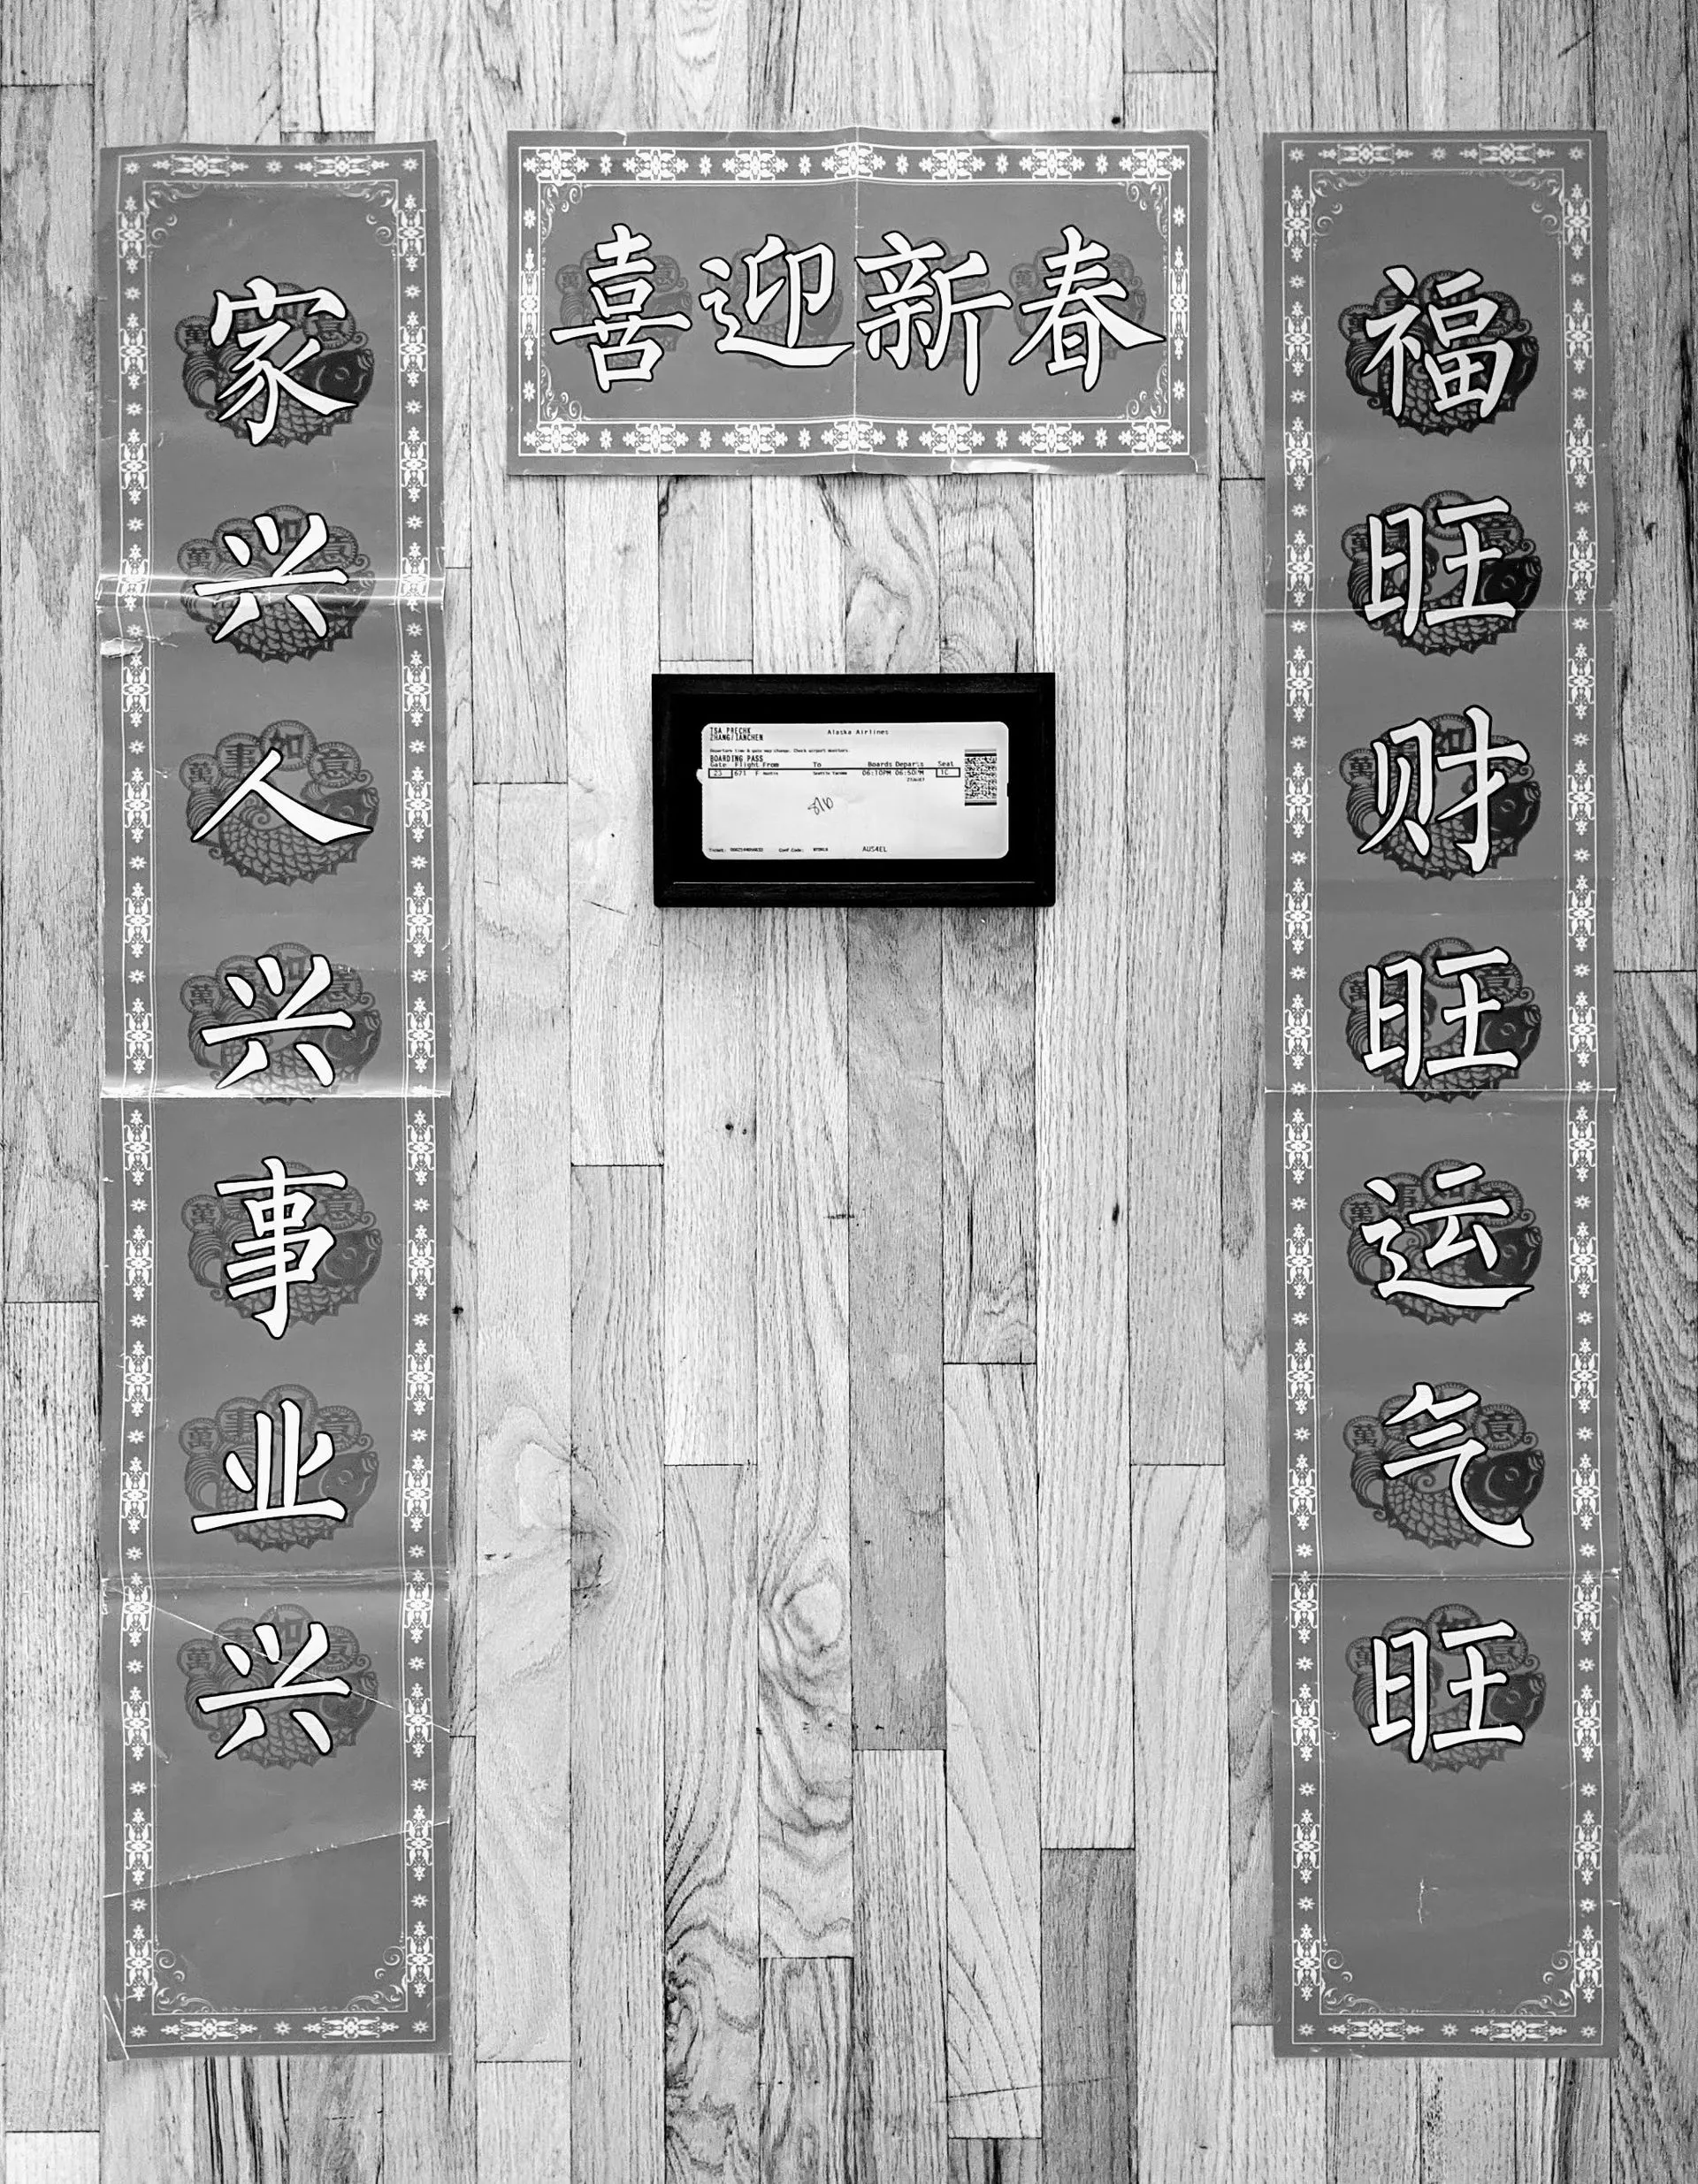 喜迎新春
福旺财旺运气旺
家兴人兴事业兴
TSA PRECHK
ZHANG/IANCHEN
Alaska Airlines
Departure time & gate may change. Check airport monitors.
BOARDING PASS
Gate Flight From To Boards Departs Seat
23 671 F Austin Seattle Tacoma 06:10PM 06:50PM 1C
Conf Code:
AUS4EL
萬事如意